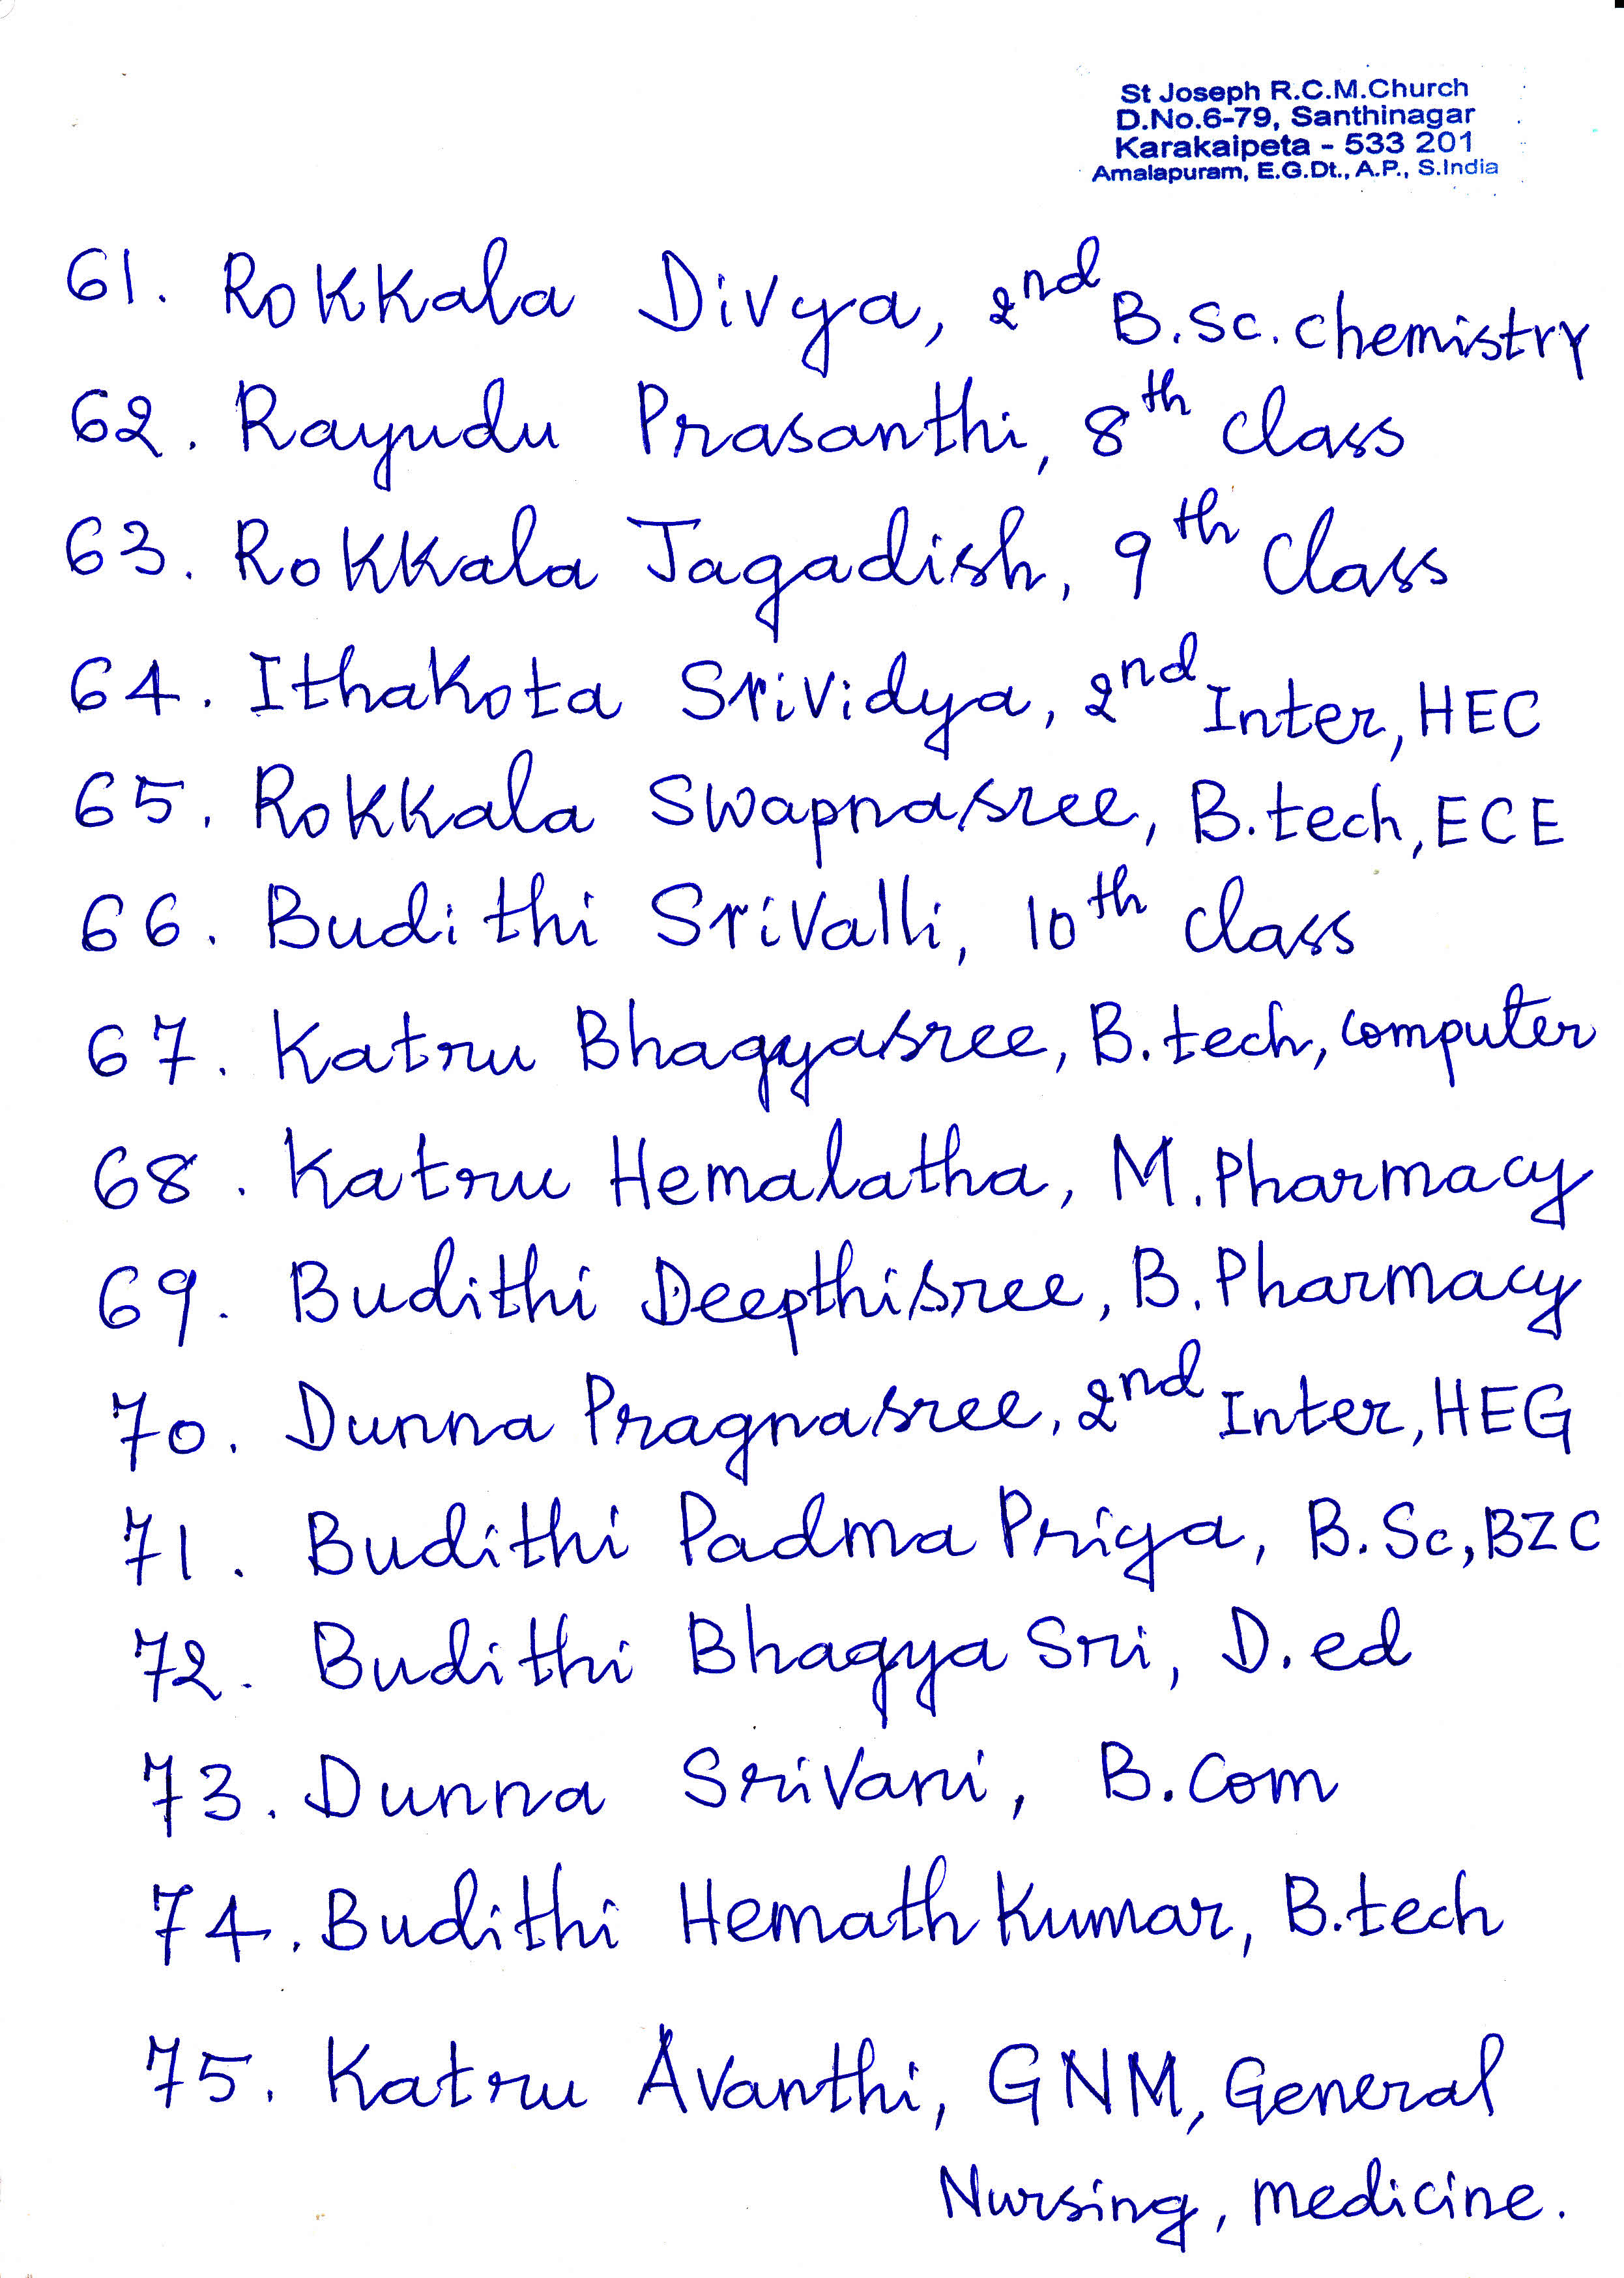 St Joseph R.C.M.Church
D.No.6-79, Santhinagar
Karakaipeta - 533 201
Amalapuram, E.G.Dt., A.P., S.India
61. Rokkala Divya, 2nd B.Sc. chemistry
62. Rayudu Prasanthi, 8th class
63. Rokkala Jagadish, 9th Class
64. Ithakota Srividya, 2nd Inter, HEC
65. Rokkala Swapnasree, B.tech, ECE
66. Budithi Srivalli, 10th class
67. Katru Bhagyasree, B.tech, computer
68. Katru Hemalatha, M.Pharmacy
69. Budithi Deepthisree, B.Pharmacy
70. Dunna Pragnasree, 2nd Inter, HEG
71. Budithi Padma Priya, B.Sc, BZC
72. Budithi Bhagya Sri, D.ed
73. Dunna Srivani, B.Com
74. Budithi Hemath Kumar, B.tech
75. Katru Avanthi, GNM, General
Nursing, medicine.